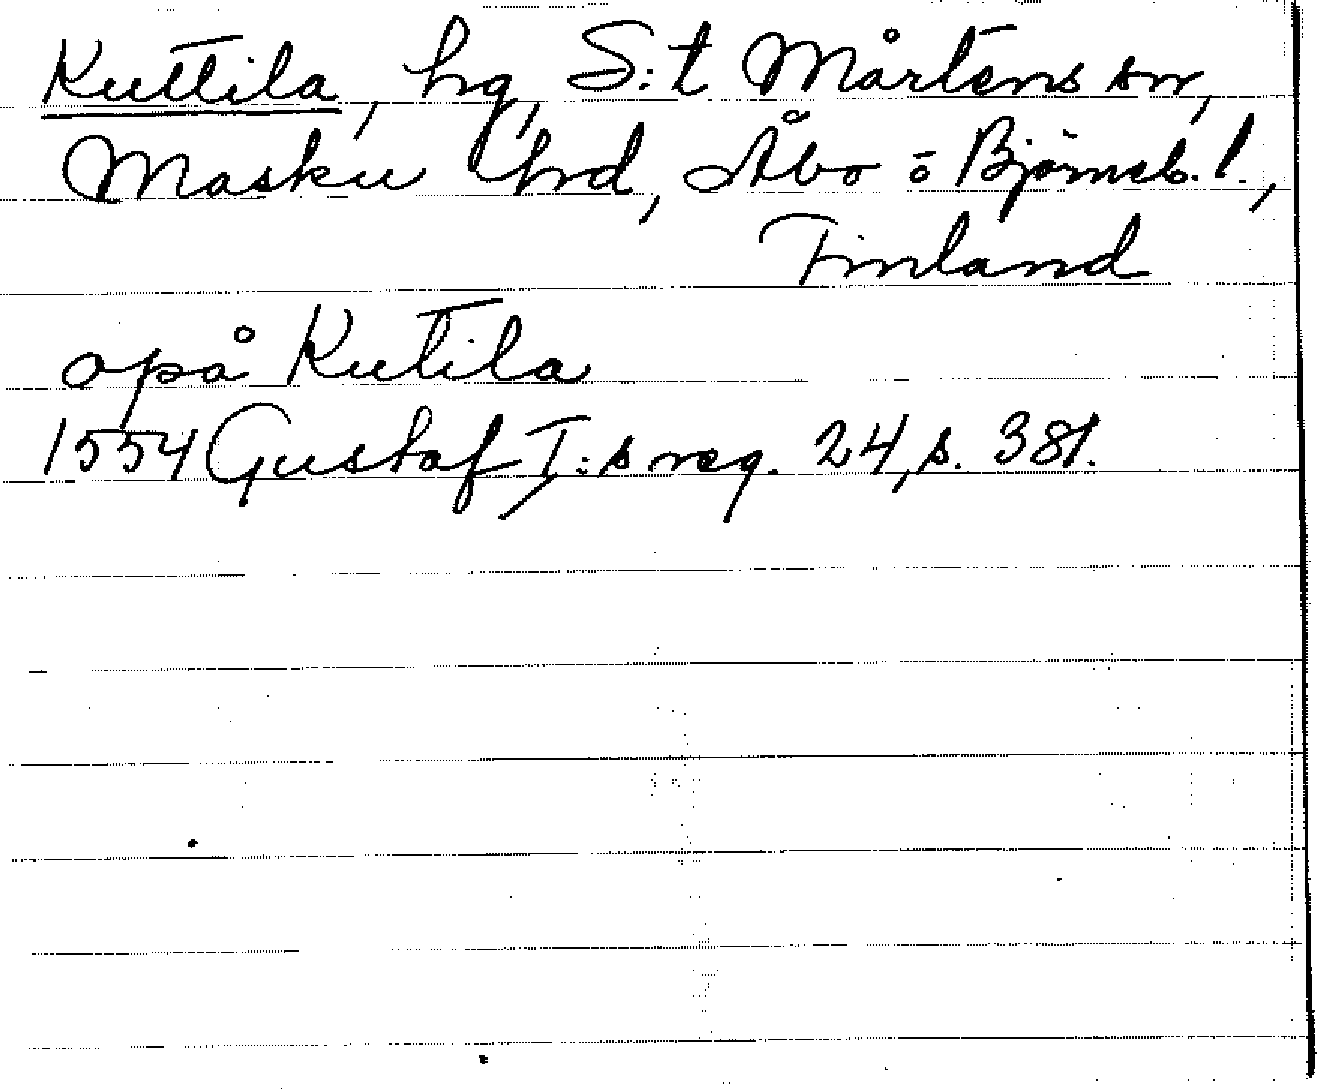 Kuttila, hg, S:t Mårtens sn,
Masku hrd, Åbo o Björneb. l.,
Finland
opå Kutila
1554 Gustaf I:s reg. 24, s. 381.